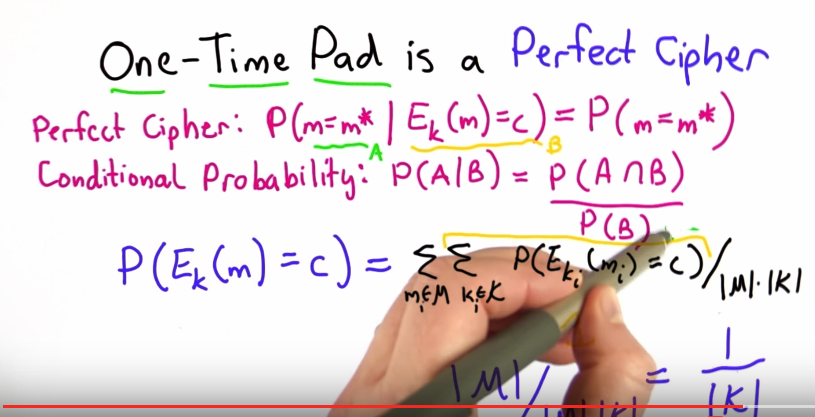 One-Time Pad is a Perfect Cipher
Perfect Cipher: P(m=m* | E_k(m)=c) = P(m=m*)
A B
Conditional Probability: P(A|B) = P(A∩B)
P(B)
P(E_k(m)=c) = Σ Σ P(E_{k_i}(m_i)=c)/|M|·|K|
m_i∈M k_i∈K
|M|/ = 1
|K|